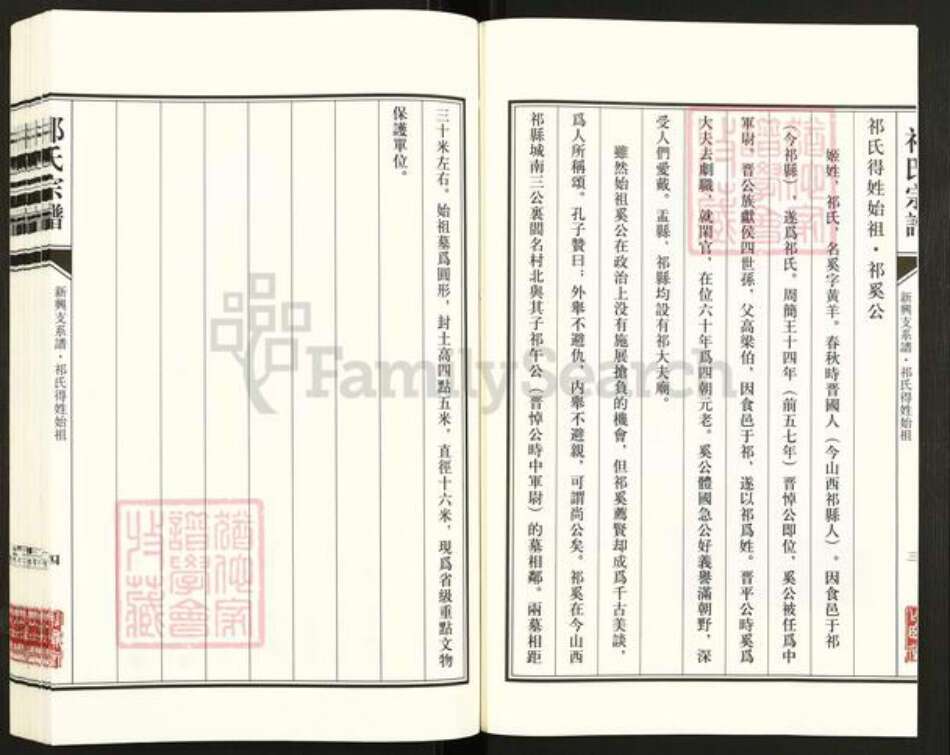 祁氏宗譜
新興支系譜·祁氏得姓始祖
三
祁氏得姓始祖·祁奚公
姬姓、祁氏、名奚字黃羊。春秋時晋國人（今山西祁縣人）。因食邑于祁
（今祁縣），遂爲祁氏。周簡王十四年（前五七年）晋悼公即位，奚公被任爲中
軍尉。晋公族獻侯四世孫，父高梁伯，因食邑于祁，遂以祁爲姓。晋平公時奚爲
大夫去劇職，就閑官，在位六十年爲四朝元老。奚公體國急公好義譽滿朝野，深
受人們愛戴。盂縣、祁縣均設有祁大夫廟。
雖然始祖奚公在政治上没有施展搶負的機會，但祁奚薦賢却成爲千古美談，
爲人所稱頌。孔子贊曰；外舉不避仇，内舉不避親，可謂尚公矣。祁奚在今山西
祁縣城南三公裏閻名村北與其子祁午公（晋悼公時中軍尉）的墓相鄰。兩墓相距
三十米左右。始祖墓爲圓形，封土高四點五米，直徑十六米，現爲省級重點文物
保護單位。
祁氏宗譜
新興支系譜·祁氏得姓始祖
四
FamilySearch